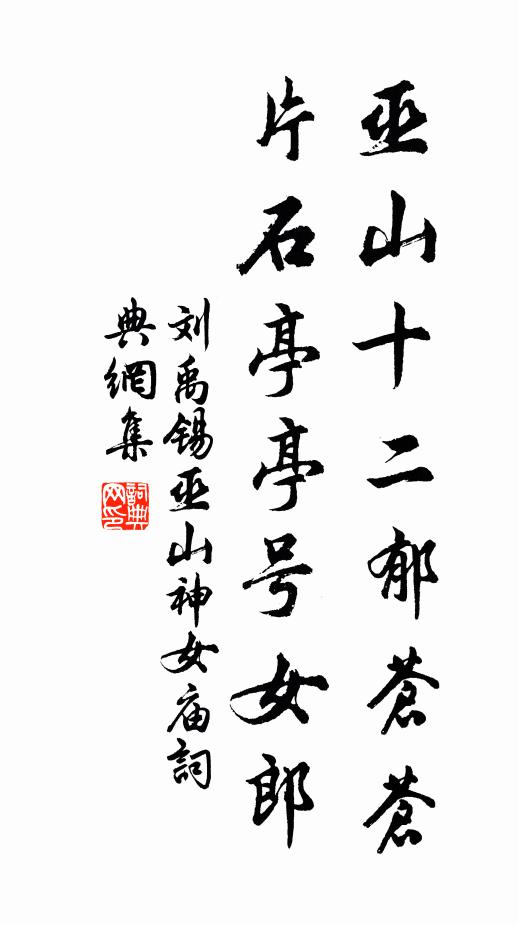 巫山十二郁苍苍
片石亭亭号女郎
刘禹锡巫山神女庙詞
典網集
詞典网印